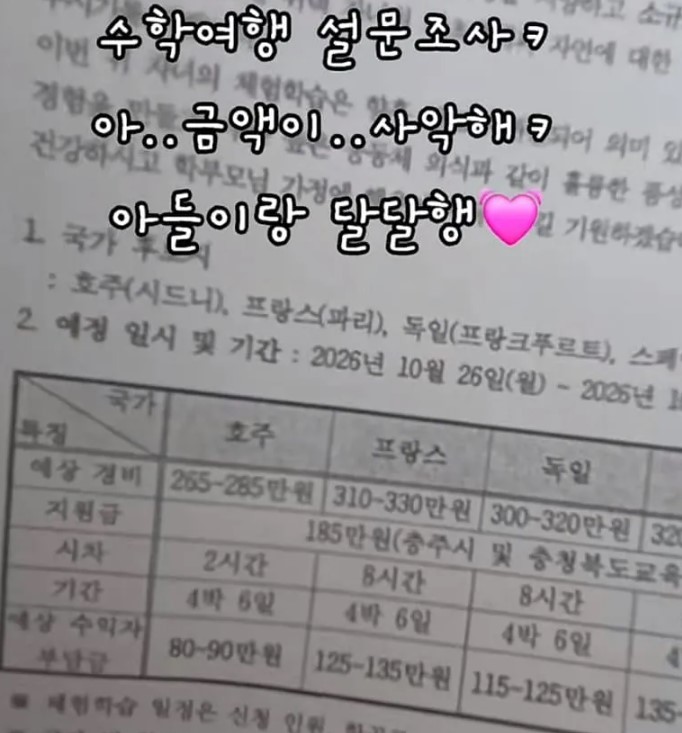 수학여행 설문조사ㅋ
아..금액이..사악해ㅋ
아들이랑 달달행💓
하고 소규
자연에 대한
이번 자녀의 체험학습은
되어 의미 있
경험을
의식과 같이 훌륭한 품성
건강하시고 학부모님 가정에
길 기원하겠습
1. 국가
: 호주(시드니), 프랑스(파리), 독일(프랑크푸르트), 스페
2. 예정 일시 및 기간 : 2026년 10월 26일(월) ~ 2026년 1
국가
특징
호주 프랑스 독일
예상 경비 265~285만원 310~330만원 300~320만원 320
지원금 185만원(충주시 및 충청북도교육
시차 2시간 8시간 8시간
기간 4박 6일 4박 6일 4박 6일 4
예상 수익자 부담금 80~90만원 125~135만원 115~125만원 135~
※ 체험학습 일정은 신청 인원